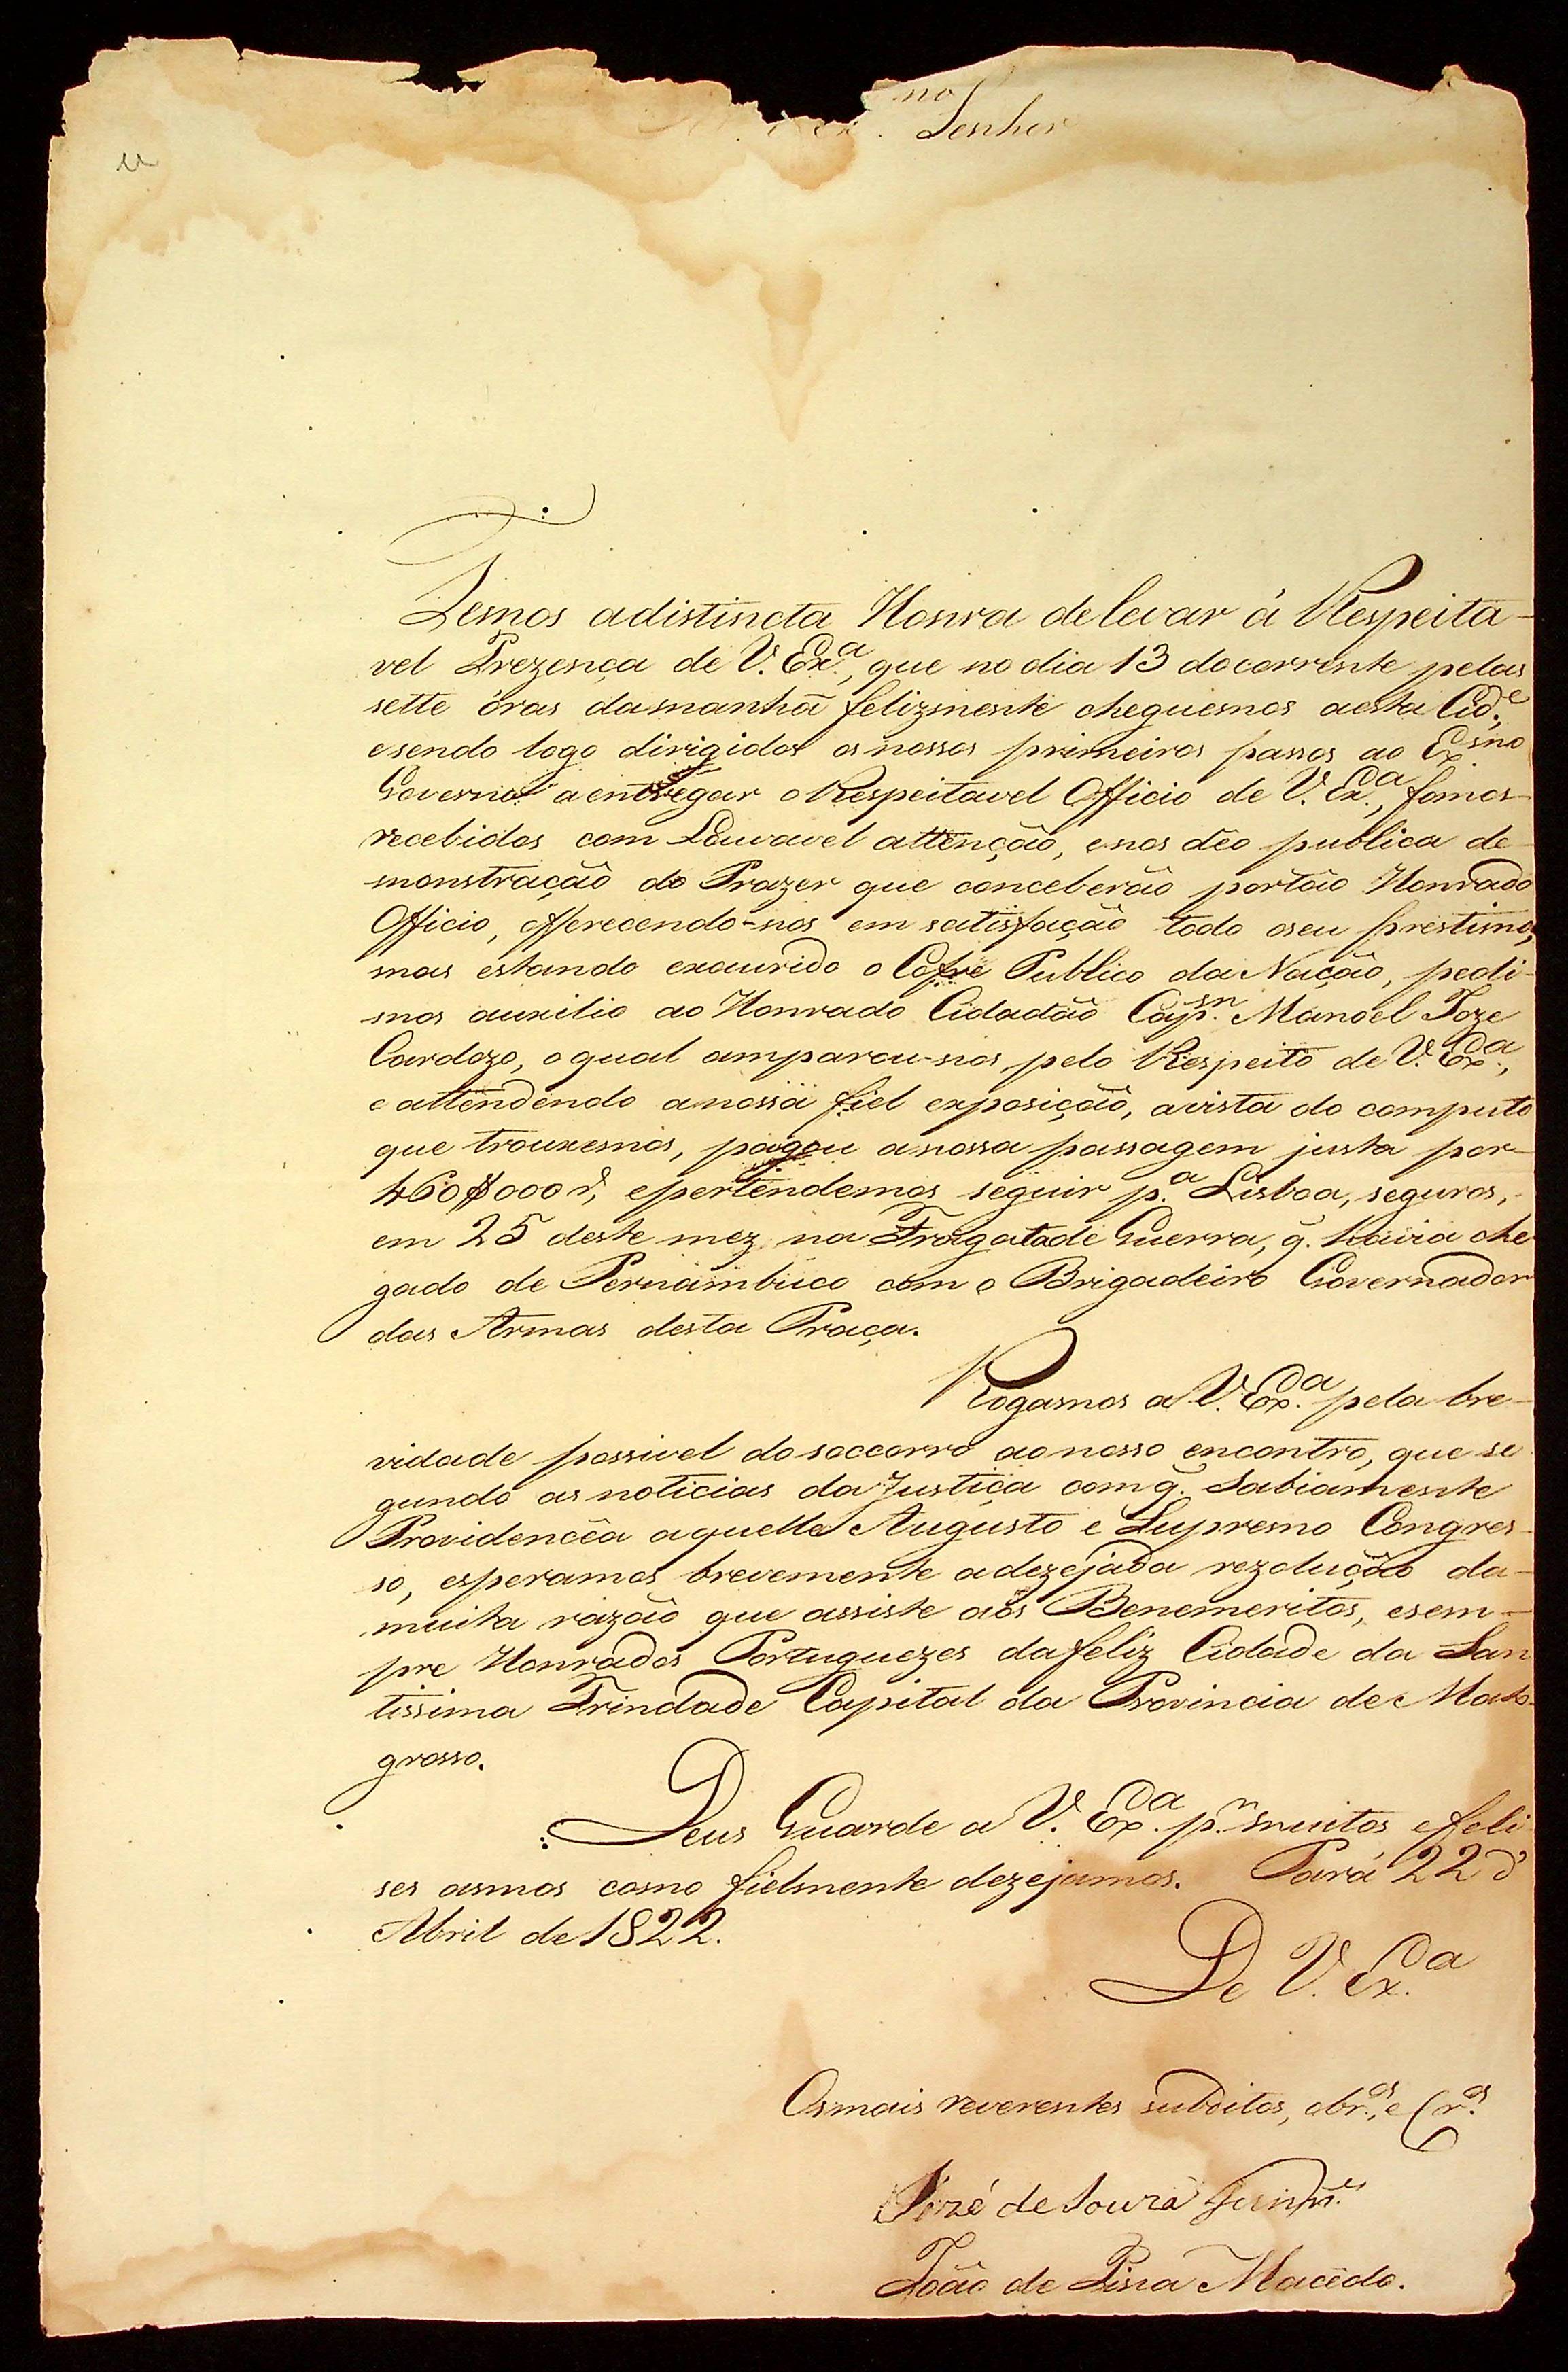 no Senhor
Temos adistincta Honra delevar á Respeita-
vel Prezença de V. Ex.a, que no dia 13 docorrente pelas
sette óras damanhã felizmente cheguemos aesta Cid.e,
esendo logo dirigidos os nossos primeiros passos ao Ex.mo
Governo aentregar o Respeitavel Officio de V. Ex.a, fomos
recebidos com Louvavel attenção, enos dêo publica de-
monstração do Prazer que conceberão portão Honrado
Officio, offerecendo-nos em satisfação todo oseu prestimo,
mas estando exaurido o Cofre Publico da Nação, pedi-
mos auxilio ao Honrado Cidadão Cap.m Manoel Joze
Cardozo, oqual amparou-nos pelo Respeito de V. Ex.a,
e attendendo anossa fiel exposição, avista do computo
que trouxemos, pagou anossa passagem justa por-
460$000 r, epertendemos seguir p.a Lisboa, seguros,
em 25 deste mez na Fragatade Guerra, q. havia che
gado de Pernambuco com o Brigadeiro Governador
das Armas desta Praça.
Rogamos a V. Ex.a pela bre-
vidade possivel do soccorro aonosso encontro, que se
gundo as noticias da Justiça comq. Sabiamente
Providencêa aquelle Augusto e Supremo Congres-
so, esperamos brevemente adezejada rezolução da-
muita razão que assiste aos Benemeritos, esem-
pre Honrados Portuguezes dafeliz Cidade da San
tissima Trindade Capital da Provincia de Mato-
grosso.
Deus Guarde a V. Ex.a p.r muitos efeli
ses annos como fielmente dezejamos. Pará 22 d'
Abril de 1822.
De V. Ex.a
Osmais reverentes subditos, obr.os, e Cr.os
Jozé de Souza
João de Pina Macêdo.